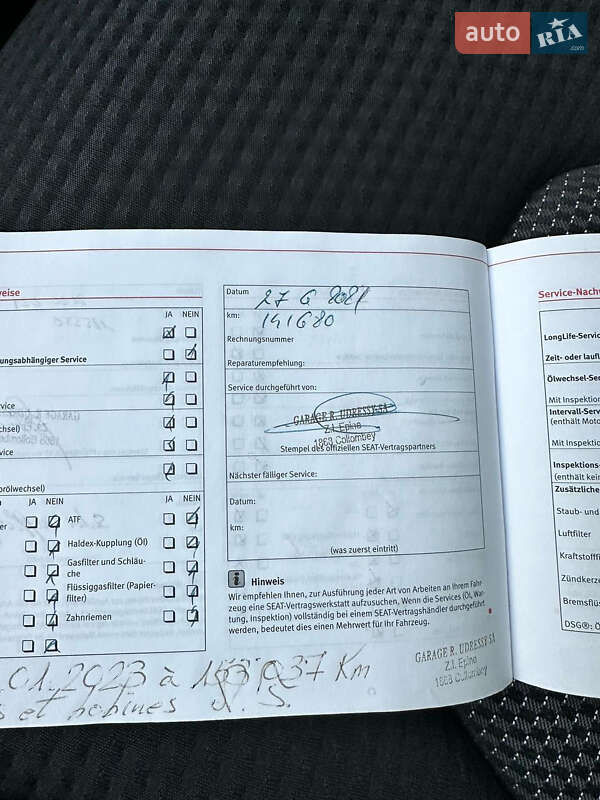 auto RIA.com
weise
JA NEIN
ungsabhängiger Service
vice
chsel)
vice
orölwechsel)
JA NEIN JA NEIN
er
ATF
Haldex-Kupplung (Öl)
Gasfilter und Schläu-
che
Flüssiggasfilter (Papier-
filter)
Zahnriemen
Datum 27 6 2021
km: 141680
Rechnungsnummer
Reparaturempfehlung:
Service durchgeführt von:
GARAGE R. UDRESSY SA
Z.I. Epine
1868 Collombey
Stempel des offiziellen SEAT-Vertragspartners
Nächster fälliger Service:
Datum:
km:
(was zuerst eintritt)
i Hinweis
Wir empfehlen Ihnen, zur Ausführung jeder Art von Arbeiten an Ihrem Fahr-
zeug eine SEAT-Vertragswerkstatt aufzusuchen. Wenn die Services (Öl, War-
tung, Inspektion) vollständig bei einem SEAT-Vertragshändler durchgeführt
werden, bedeutet dies einen Mehrwert für Ihr Fahrzeug.
.01.2023 à 153 037 Km
s et bobines
GARAGE R. UDRESSY SA
Z.I. Epine
1868 Collombey
Service-Nachw
LongLife-Servic
Zeit- oder laufl
Ölwechsel-Se
Mit Inspektion
Intervall-Servic
(enthält Moto
Mit Inspektio
Inspektions-
(enthält kein
Zusätzliche
Staub- und
Luftfilter
Kraftstofffi
Zündkerze
Bremsflüs
DSG®: Ö